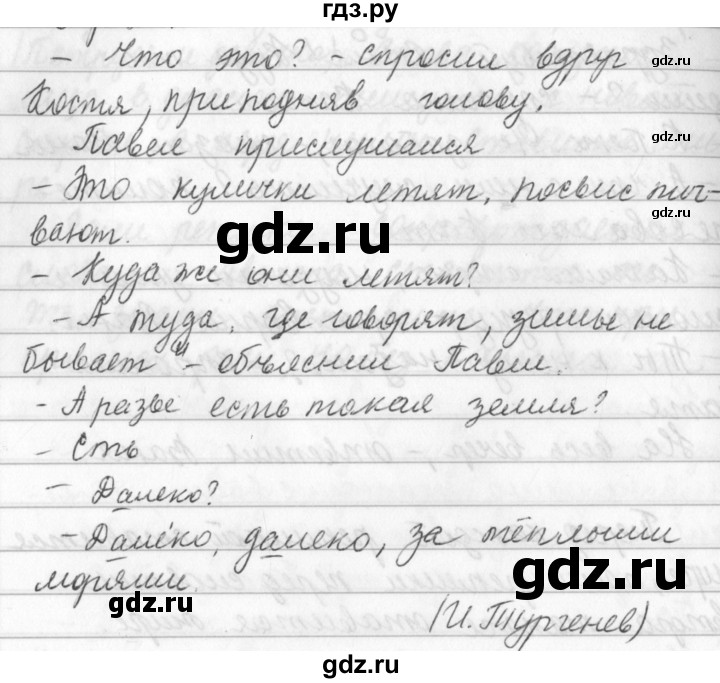 гдз.ру
- Что это? - спросил вдруг
Костя, приподняв голову.
gdz.ru
Павел прислушался
gdz.ru
- Это кулички летят, посвисты-
gdz.ru
вают.
gdz.ru
- Куда же они летят?
- А туда, где говорят, зимы не
gdz.ru
бывает - объяснил Павел.
- А разве есть такая земля?
gdz.ru
- Сть
- Далеко?
- Далеко, далеко, за тёплыми
gdz.ru
морями.
gdz.ru
(И. Тургенев)
gdz.ru